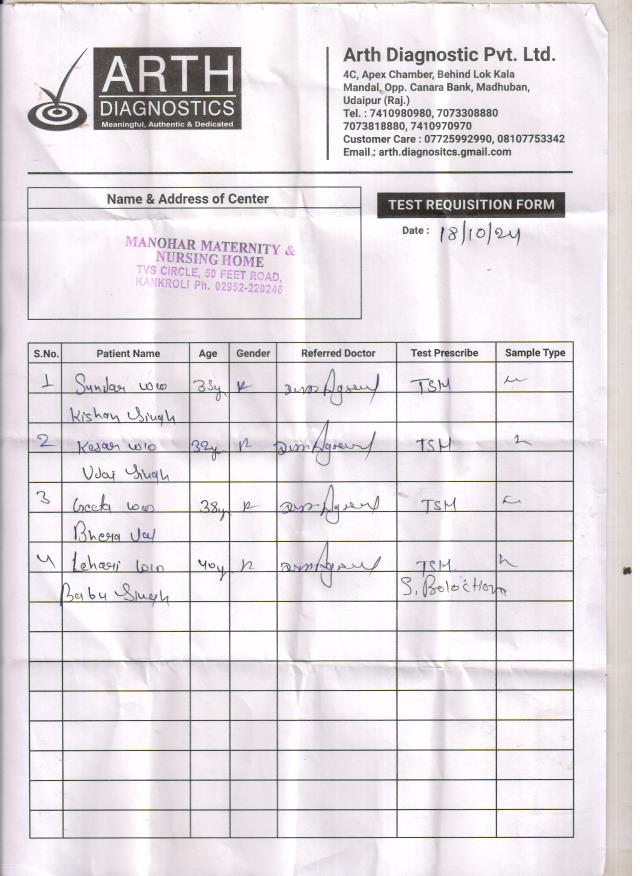 ARTH
DIAGNOSTICS
Meaningful, Authentic & Dedicated
Arth Diagnostic Pvt. Ltd.
4C, Apex Chamber, Behind Lok Kala
Mandal, Opp. Canara Bank, Madhuban,
Udaipur (Raj.)
Tel. : 7410980980, 7073308880
7073818880, 7410970970
Customer Care : 07725992990, 08107753342
Email : arth.diagnositcs.gmail.com
Name & Address of Center
TEST REQUISITION FORM
Date : 18/10/24
MANOHAR MATERNITY &
NURSING HOME
TVS CIRCLE, 50 FEET ROAD,
KANKROLI Ph. 02952-220246
S.No. Patient Name Age Gender Referred Doctor Test Prescribe Sample Type
1 Sundar w/o 35y TSM
Kishan Singh
2 Kesar w/o 32y TSM
Udai Singh
3 Geeta w/o 38y TSM
Bhera
4 Lehari w/o 40y TSM
Babu Singh S.